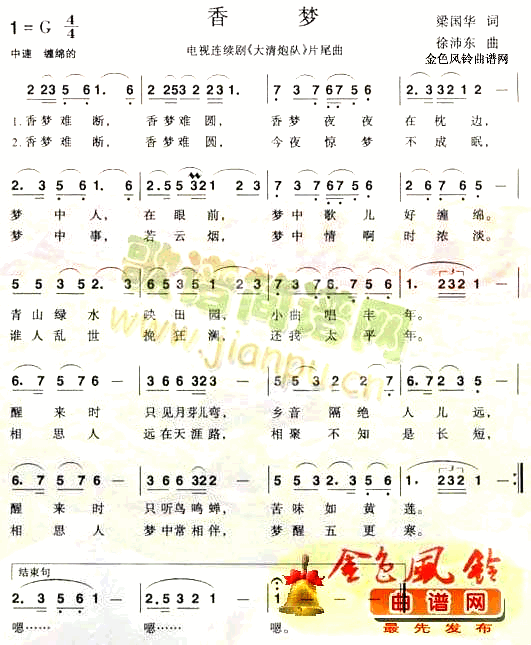 香 梦
1=G 4/4
中速 缠绵的
电视连续剧《大清炮队》片尾曲
梁国华 词
徐沛东 曲
金色风铃曲谱网
2 23 5 6 1. 6 | 2 253 2 231 – | 7 3 7 6 7 5 6 | 2. 3 3 2 1 2 – |
1.香梦难断, 香梦难圆, 香梦夜夜 在枕边,
2.香梦难断, 香梦难圆, 今夜惊梦 不成眠,
2. 3 5 61. 6 | 2.55 321 2 3 | 7 3 7 6 7 5 6 | 5. 3 5 7 6 – |
梦中人, 在眼前, 梦中歌儿 好缠绵。
梦中事, 若云烟, 梦中情啊 时浓淡。
5 5 3 5 2. 3 | 5 3 5 6 – | 1 2 7 6 5 6 | 1. 2 3 2 1 |
青山绿水 映田园, 小曲唱丰年。
谁人乱世 挽狂澜, 还我太平年。
6. 7 5 7 6 – | 3 6 6 3 2 2 – | 5 5 3 2. 3 5 | 6. 7 2 7 6 – |
醒来时 只见月芽儿弯, 乡音隔绝人儿远,
相思人 远在天涯路, 相聚不知是长短,
6. 7 5 7 6 – | 3 6 6 3 2 2 – | 5 5 3 2. 3 5 6 | 1. 2 3 2 1 :|
醒来时 只听鸟鸣蝉, 苦味如黄莲。
相思人 梦中常相伴, 梦醒五更寒。
歌谱简谱网
www.jianpu.cn
结束句
2. 3 5 6 1 – | 2. 3 5 6 1 – | 1 – – –
嗯…… 嗯…… 嗯。
金色風铃
曲谱网
最先发布